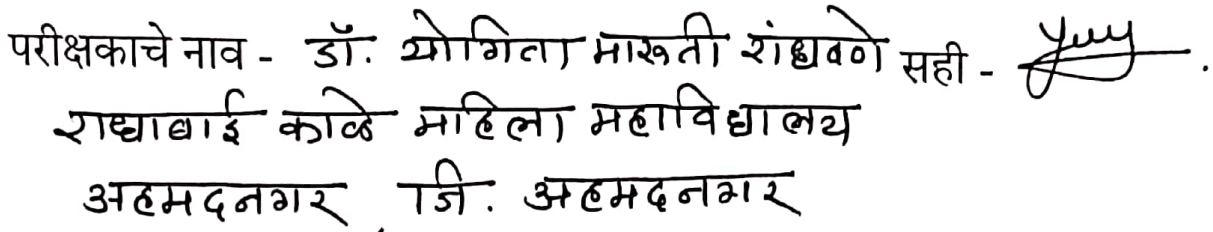 परीक्षकाचे नाव - डॉ. योगिता मारुती रांधवणे सही -
राधाबाई काळे महिला महाविद्यालय
अहमदनगर, जि. अहमदनगर